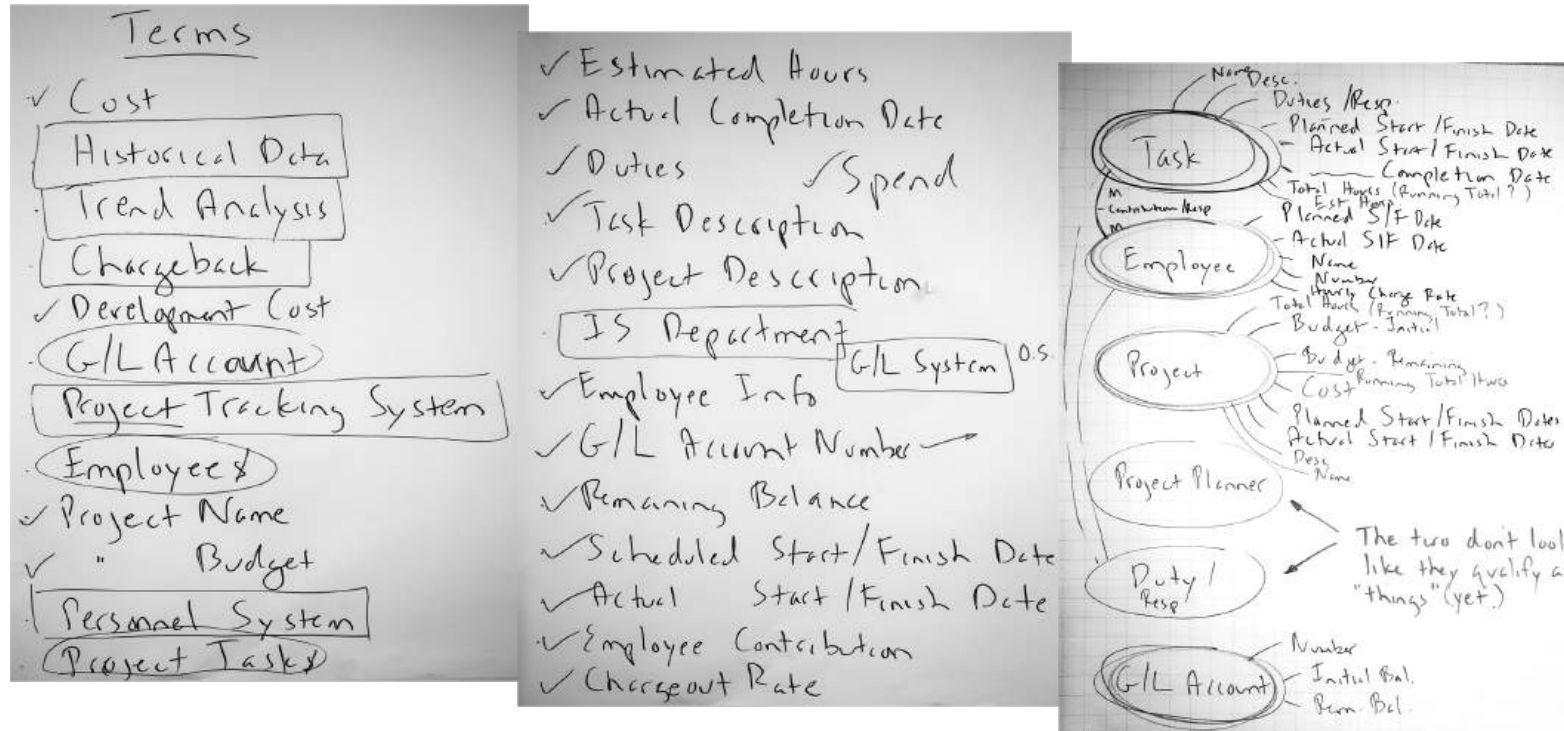 Terms
✓ Cost
Historical Data
Trend Analysis
Chargeback
✓ Development Cost
G/L Account
Project Tracking System
Employees
✓ Project Name
✓ " Budget
Personnel System
Project Tasks
✓ Estimated Hours
✓ Actual Completion Date
✓ Duties ✓ Spend
✓ Task Description
✓ Project Description
IS Department
G/L System O.S.
✓ Employee Info
✓ G/L Account Number
✓ Remaining Balance
✓ Scheduled Start/Finish Date
✓ Actual Start/Finish Date
✓ Employee Contribution
✓ Chargeout Rate
Name
Desc.
Duties/Resp.
Planned Start/Finish Date
Task
Actual Start/Finish Date
Completion Date
Total Hours (Running Total?)
Est Hours
M
- Contribution/Resp
M
Planned S/F Date
Actual S/F Date
Employee
Name
Number
Hourly Charge Rate
Total Hours (Running Total?)
Budget - Initial
Project
Budget - Remaining
Running Total Hours
Cost
Planned Start/Finish Dates
Actual Start/Finish Dates
Desc
Name
Project Planner
The two don't look
like they qualify a
"things" (yet.)
Duty/
Resp
G/L Account
Number
Initial Bal.
Rem. Bal.